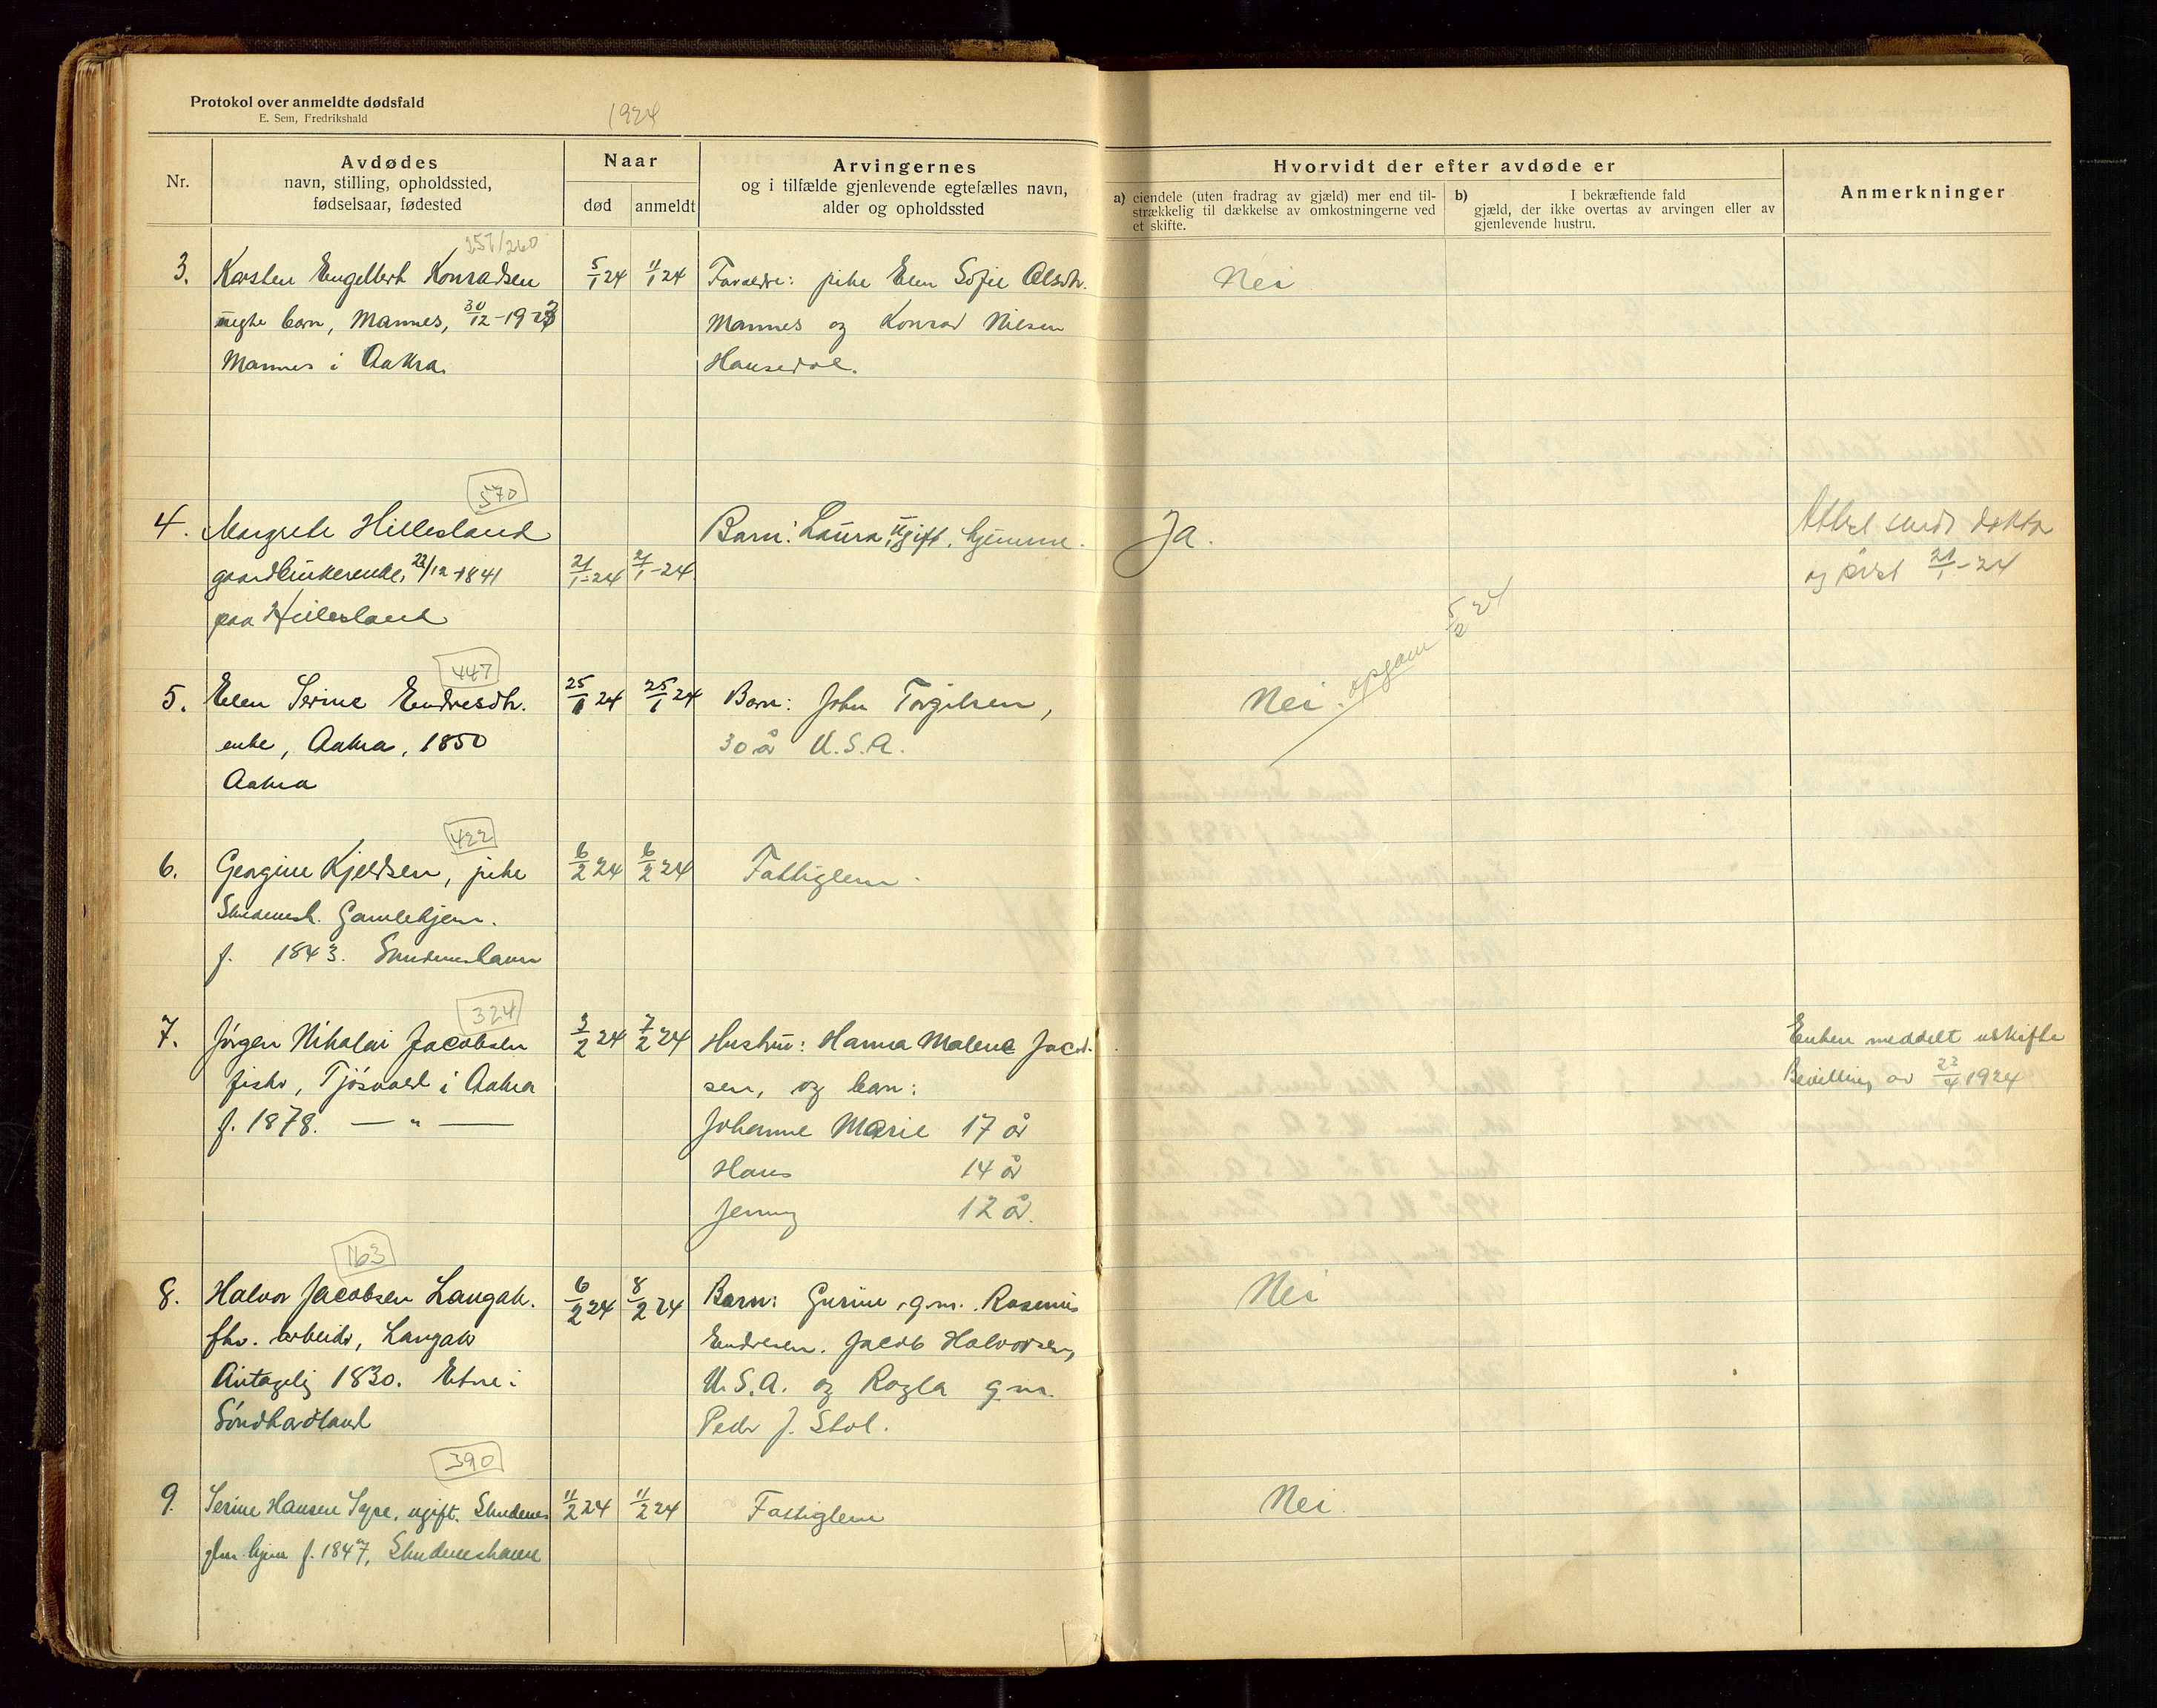 Protokol over anmeldte dødsfald
E. Sem, Fredrikshald
1924
Nr.
Avdødes
navn, stilling, opholdssted,
fødselsaar, fødested
Naar
død
anmeldt
Arvingernes
og i tilfælde gjenlevende egtefælles navn,
alder og opholdssted
Hvorvidt der efter avdøde er
a) eiendele (uten fradrag av gjæld) mer end til-
strækkelig til dækkelse av omkostningerne ved
et skifte.
b) I bekræftende fald
gjæld, der ikke overtas av arvingen eller av
gjenlevende hustru.
Anmerkninger
257/260
3. Karsten Engelbert Konradsen 5/1 24 11/1 24 Forældre: pike Elen Sofie Olsdtr. Nei
uegte barn, Mannes, 30/12-1923 Mannes og Konrad Nilsen
Mannes i Aakra. Hausedal.
570
4. Margrete Hillesland Barn: Laura, ugift, hjemme. Ja.
gaardbrukerenke, 22/12-1841 21/1-24 21/1-24
paa Hillesland
og 21/1-24
447
5. Elen Serine Endresdtr. 25/1 24 25/1 24 Barn: John Torgilsen, Nei. opgam 5/2 24
enke, Aakra, 1850 30 år U.S.A.
Aakra
422
6. Georgine Kjeldsen, pike 6/2 24 6/2 24 Fattiglem.
Skudenesh. Gamlehjem.
f. 1843. Skudeneshavn
324
7. Jørgen Nikolai Jacobsen 3/2 24 7/2 24 Hustru: Hanna Malene Jacob- Enken meddelt uskifte
fisker, Tjøsvold i Aakra sen, og barn: Bevilling av 23/4 1924
f. 1878. — " — Johanne Marie 17 år
Hans 14 år
Jenny 12 år.
163
8. Halvor Jacobsen Langåk. 6/2 24 8/2 24 Barn: Gurine, g.m. Rasmus Nei
fhv. arbeider, Langåk Endresen. Jacob Halvorsen,
Antagelig 1830. Etne i U.S.A. og Ragla g.m.
Søndhordland Peder J. Stol.
390
9. Serine Hansen Syre, ugift. Skudenes 11/2 24 11/2 24 Fattiglem Nei.
glm. hjem f. 1847, Skudeneshavn